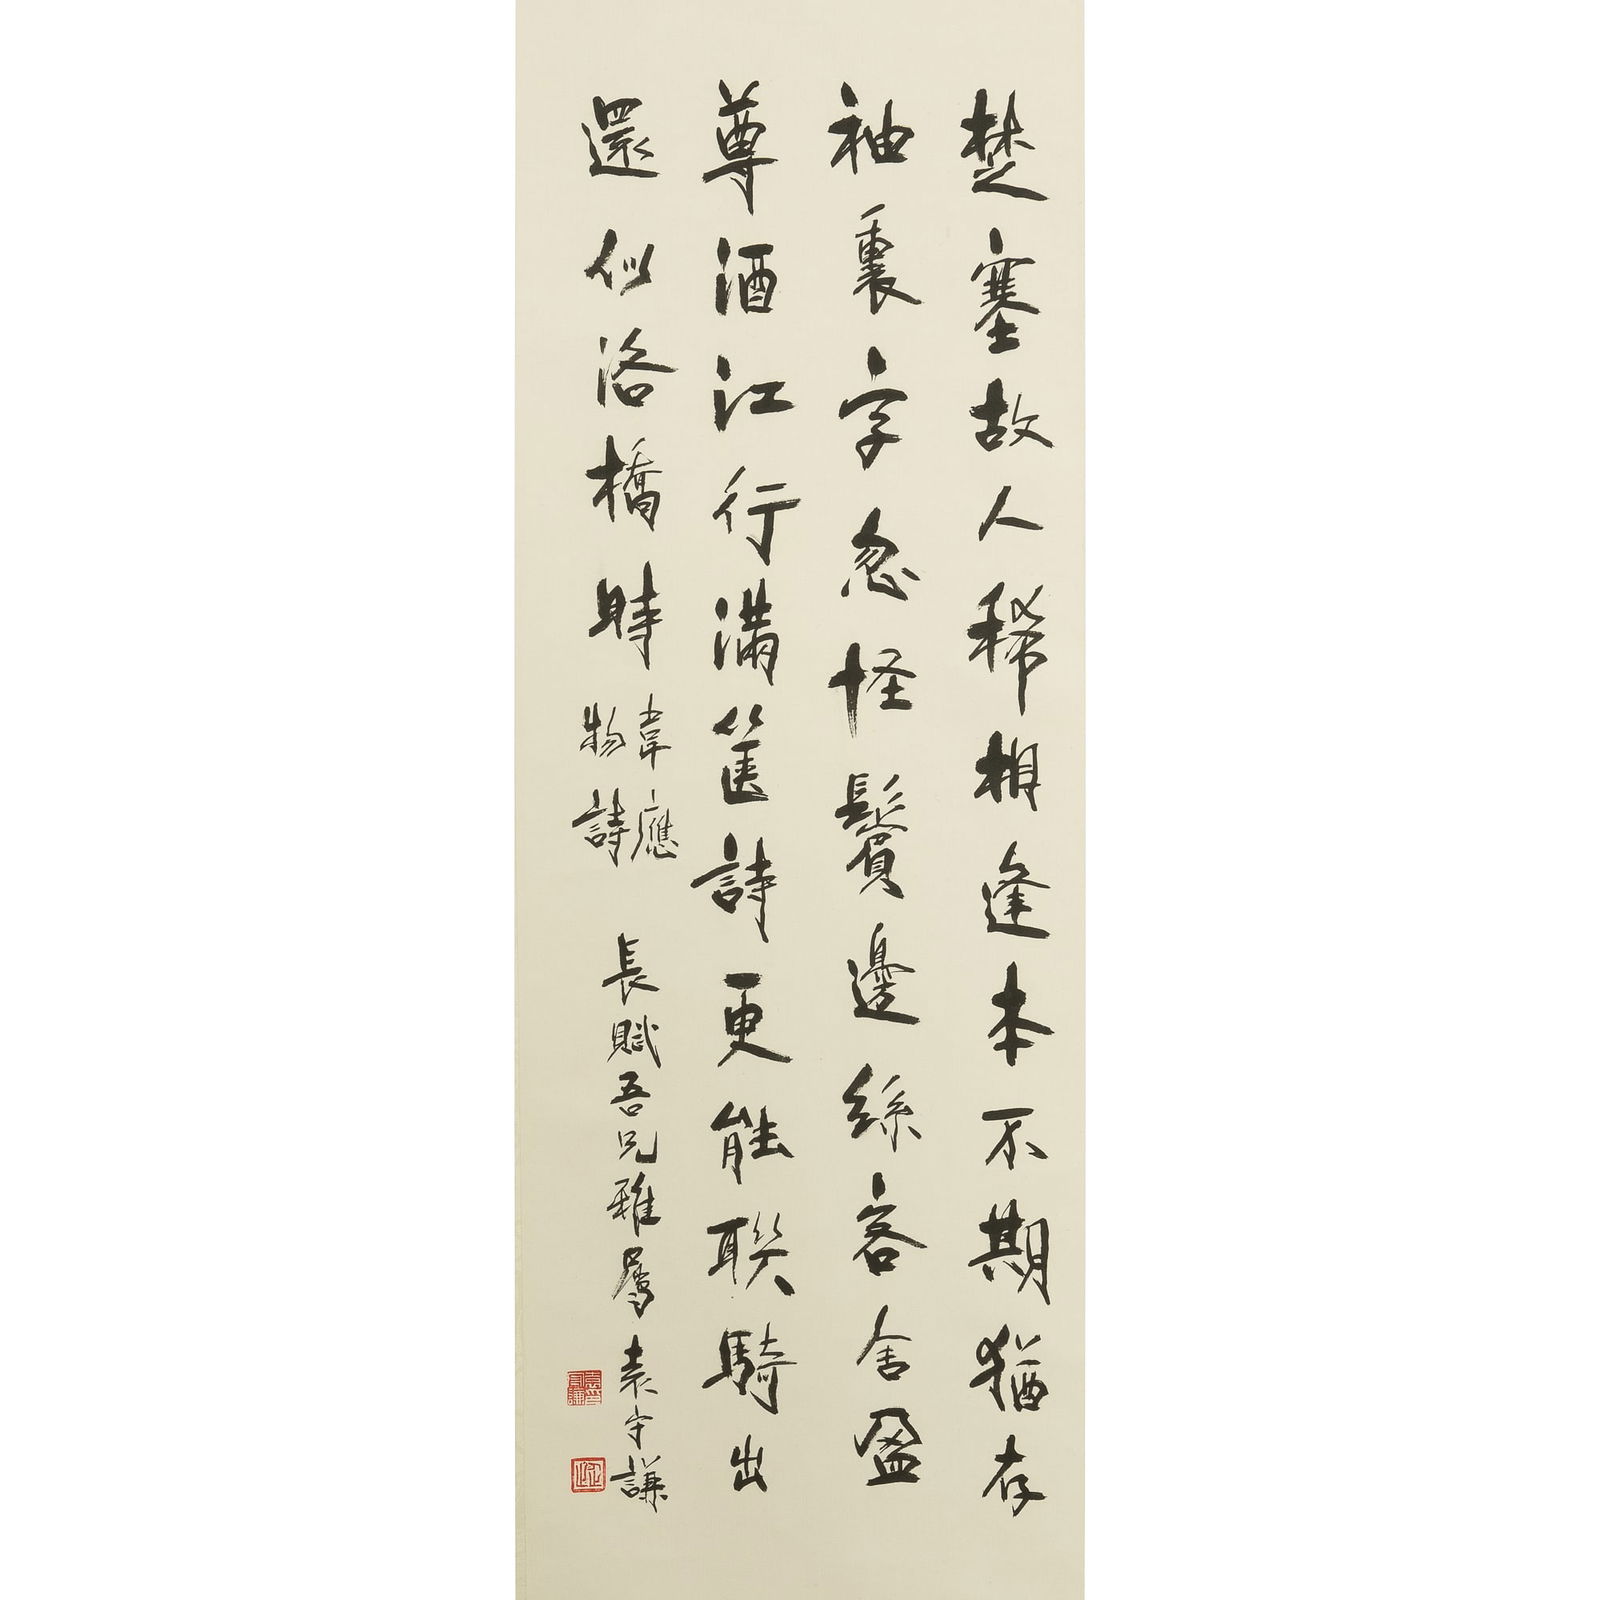 楚塞故人稀相逢本不期猶存
袖裏字忽怪鬢邊絲客舍盈
尊酒江行滿篋詩更能聯騎出
還似洛橋時
韋應
物詩
長賦吾兄雅屬 袁守謙
袁守謙印